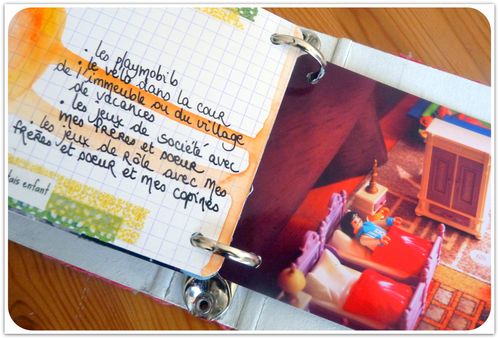 • les playmobils
• le vélo dans la cour
de l'immeuble ou du village
de vacances
• les jeux de société avec
mes frères et soeur
• les jeux de rôle avec mes
frères et soeur et mes copines
tais enfant